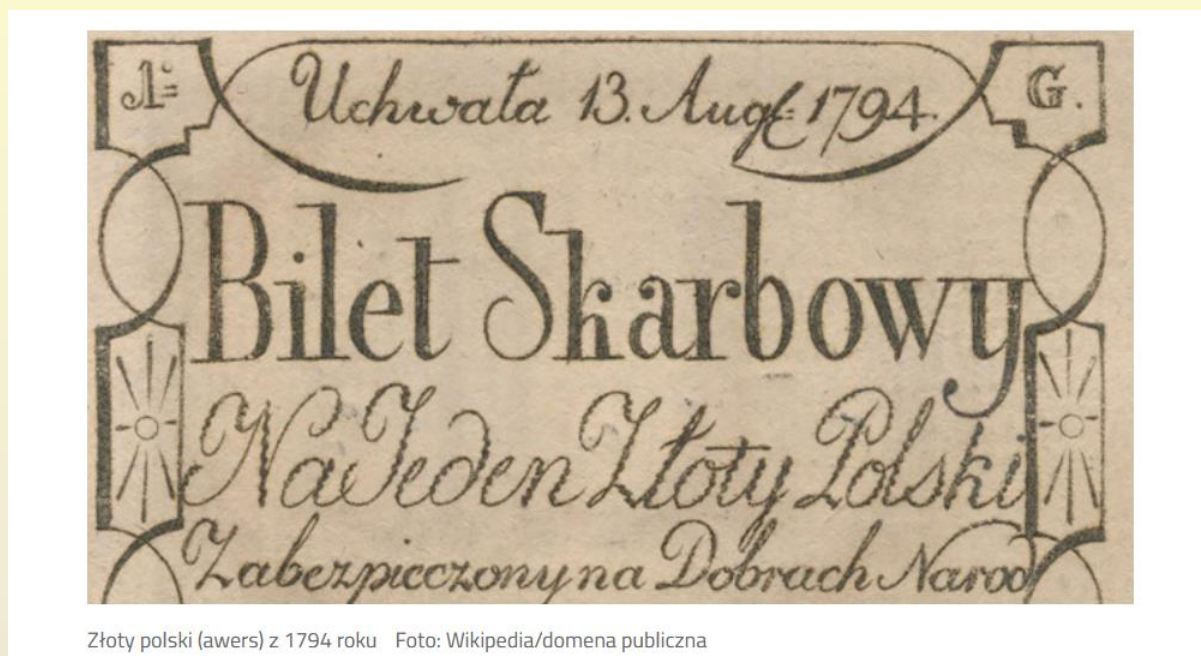 1= G.
Uchwała 13. Augt= 1794.
Bilet Skarbowy
Na Jeden Złoty Polski
Zabezpieczony na Dobrach Narod
Złoty polski (awers) z 1794 roku Foto: Wikipedia/domena publiczna